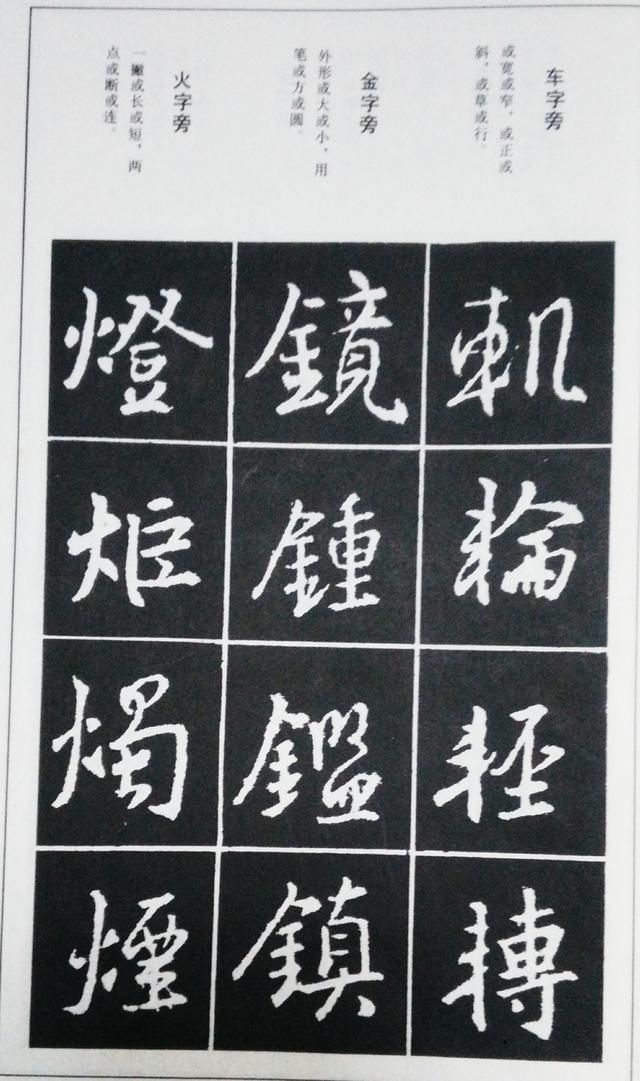 车字旁
或宽或窄，或正或
斜，或草或行。
軌
輪
輕
轉
金字旁
外形或大或小，用
笔或方或圆。
鏡
鍾
鑑
鎮
火字旁
一撇或长或短，两
点或断或连。
燈
炬
燭
煙